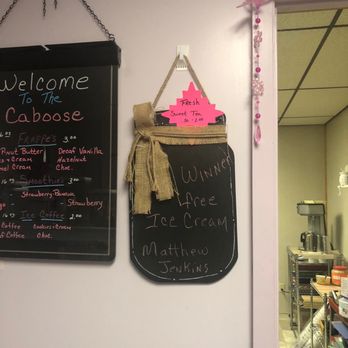 Welcome
To The
Caboose
16 oz Frappe's 3.00
Peanut Butter Decaf Vanilla
Cream Hazelnut
Caramel Cream Choc.
16 oz Smoothies 3.00
Strawberry-Banana
Strawberry
16 oz Ice Coffee 2.00
Coffee Cookies & Cream
Coffee Choc.
Fresh
Sweet Tea
2.00
Winner
Free
Ice Cream
Matthew
Jenkins